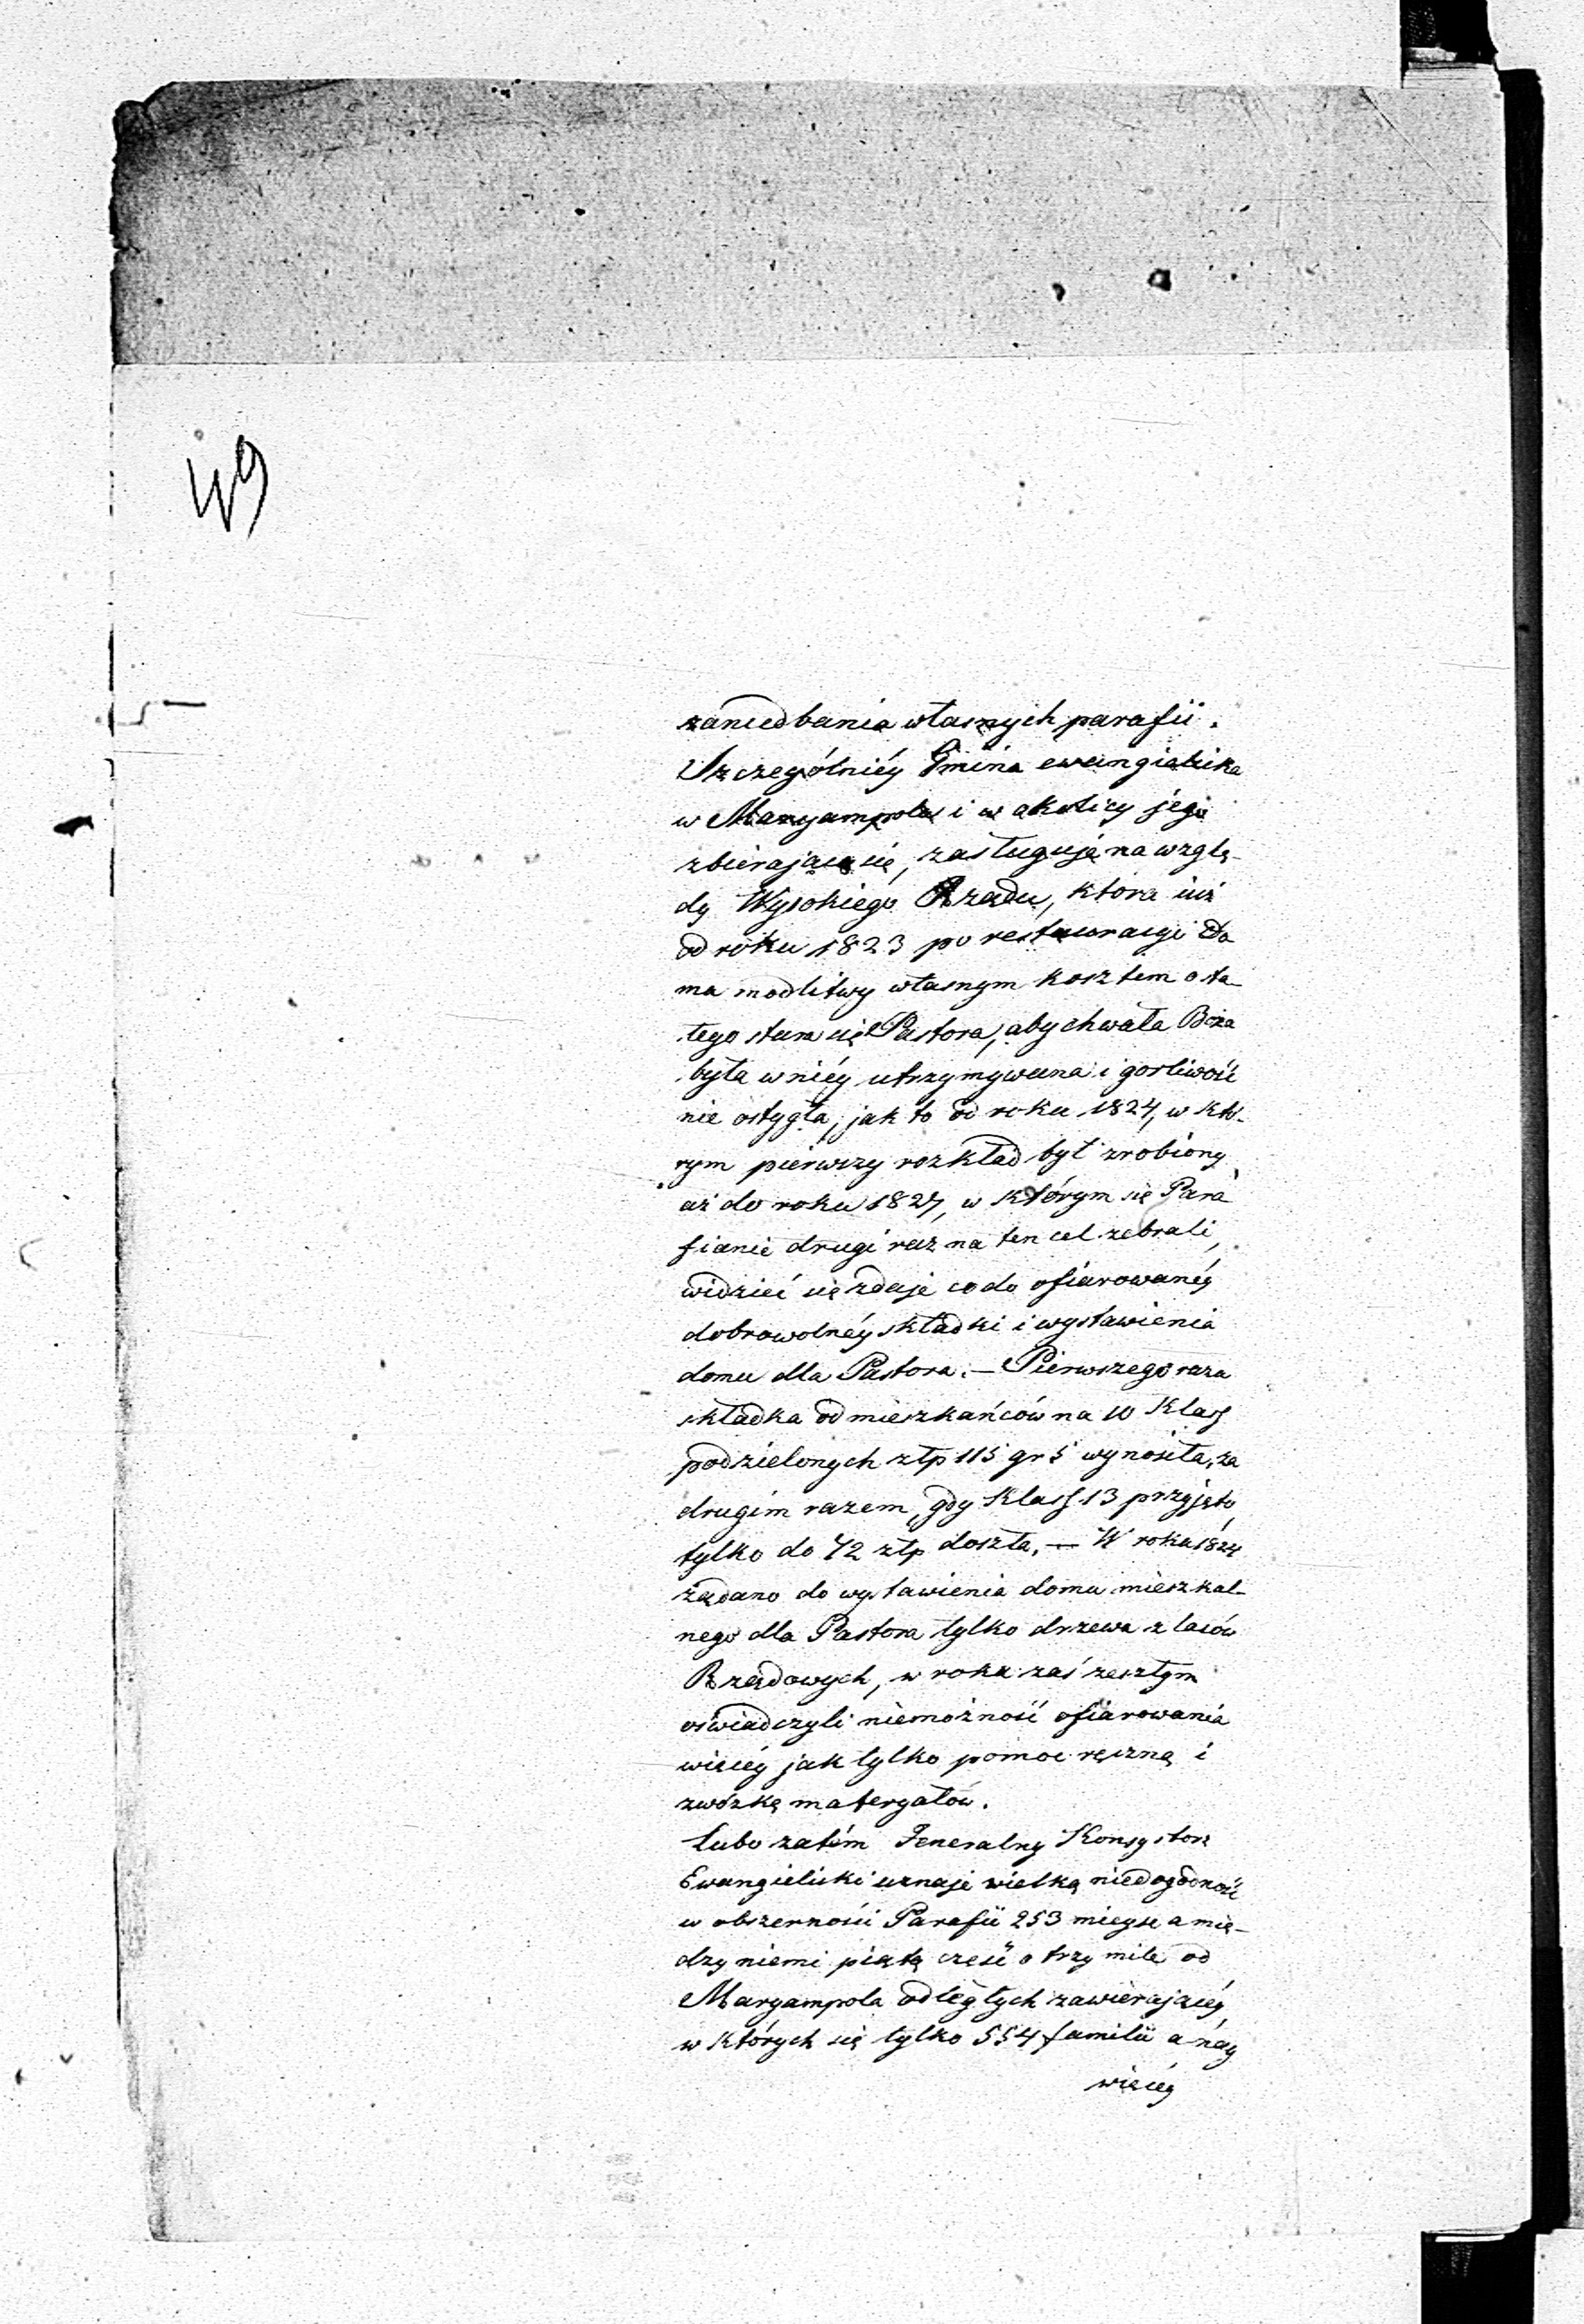 49
zaniedbania własnych parafii.
Szczególniéy Gmina ewangielicka
w Maryampolu i w okolicy jego
zbierająca się, zasługuje na wzglę-
dy Wysokiego Rządu, która iuż
od roku 1823 po restauracyi Do
ma modlitwy własnym kosztem o sta
tego stara się Pastora, aby chwała Boża
była w niéy utrzymywana i gorliwość
nie ostygła, jak to od roku 1824, w któ-
rym pierwszy rozkład był zrobiony
aż do roku 1827, w którym się Para
fianie drugi raz na ten cel zebrali,
widzieć się zdaje co do ofiarowanéy
dobrowolnéy składki i wystawienia
domu dla Pastora. — Pierwszego raza
składka od mieszkańców na 10 Klass
podzielonych złp 115 gr 5 wynosiła, za
drugim razem, gdy Klass 13 przyjęto
tylko do 72 złp doszła. — W roku 1824
żądano do wystawienia domu mieszkal-
nego dla Pastora tylko drzewa z lasów
Rządowych, w roku zaś zeszłym
oświadczyli niemożność ofiarowania
więcéy jak tylko pomoc ręczną i
zwózkę materyałów.
Lubo zatém Jeneralny Konsystorz
Ewangielicki uznaje wielką niedogodność
w obszerności Parafii 253 mieysc a mię-
dzy niemi piątą część o trzy mile od
Maryampola odległych zawierajacéy
w których się tylko 554 familii a náy
więcéy